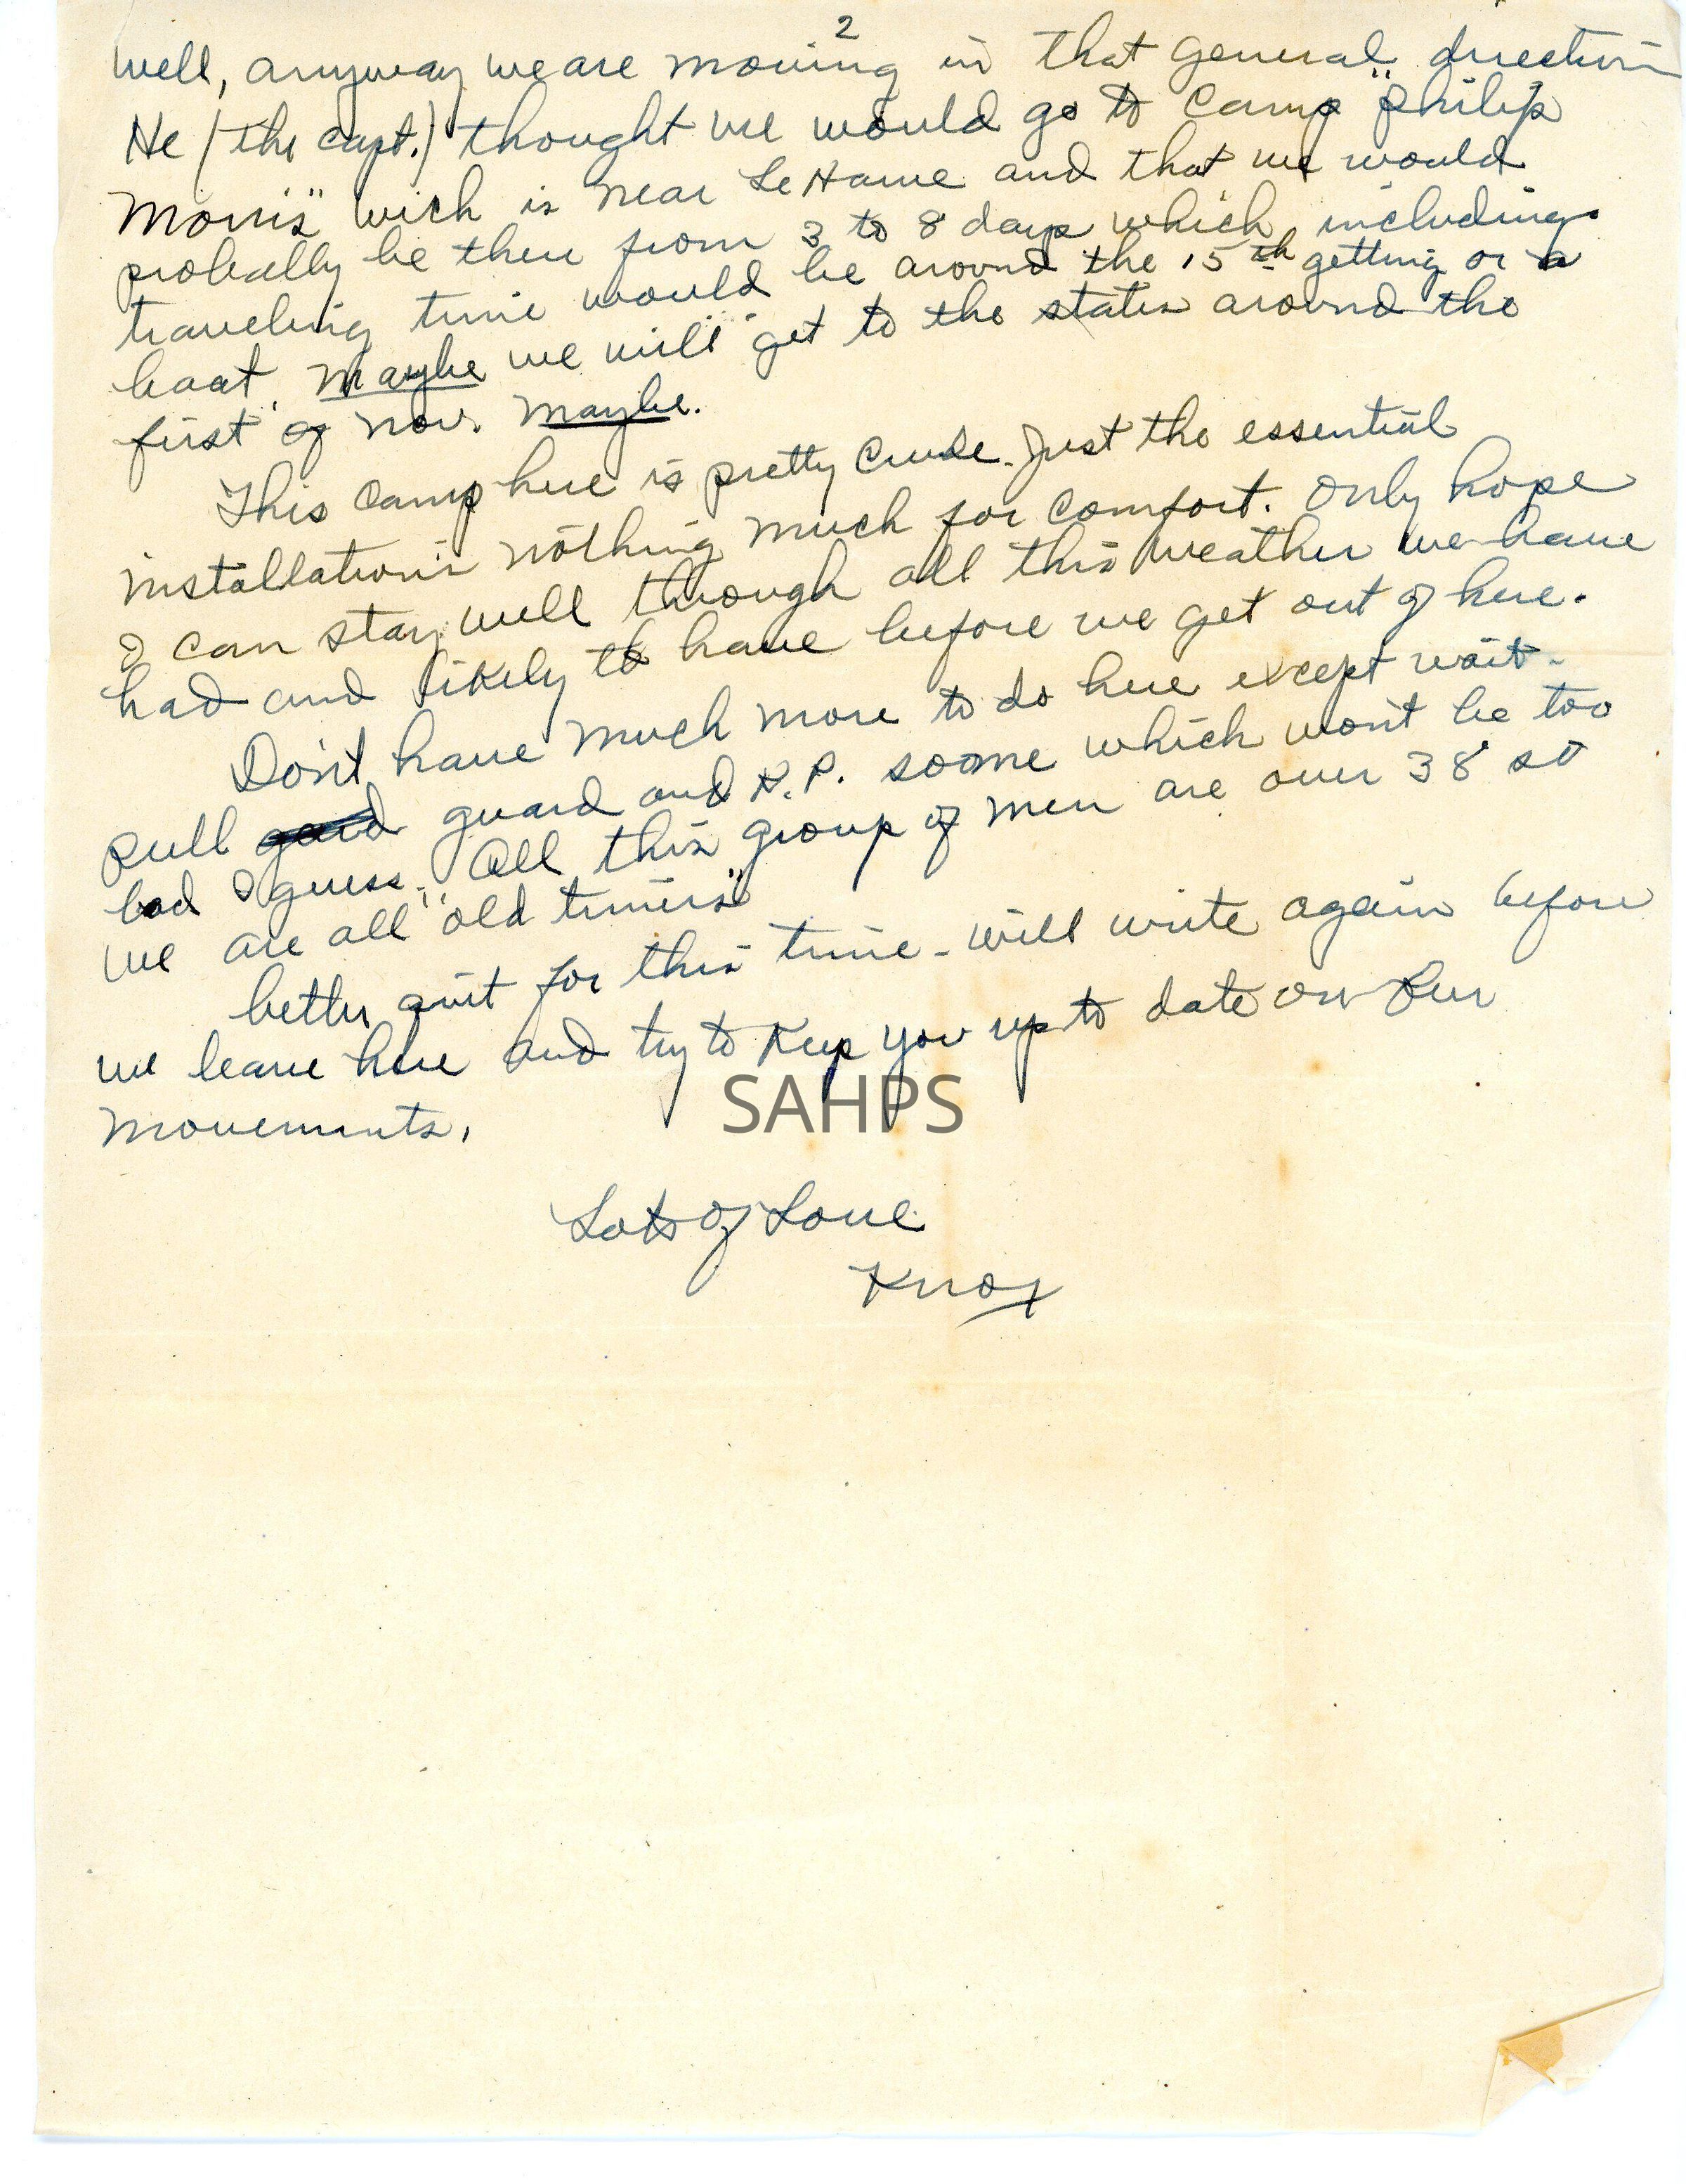 2
well, anyway we are moving in that general direction
He (the capt.) thought we would go to Camp "Philip
Morris" wich is near Le Havre and that we would
probally be there from 3 to 8 days which including
traveling time would be around the 15th getting on a
boat. Maybe we will get to the states around the
first of Nov. Maybe.
This camp here is pretty crude. Just the essential
installations nothing much for comfort. Only hope
I can stay well through all this weather we have
had and likely to have before we get out of here.
Don't have much more to do here except wait.
pull guard and K.P. some which wont be too
bad I guess. All this group of men are over 38 so
we are all "old timers"
better quit for this time - will write again before
we leave here and try to keep you up to date on our
movements.
SAHPS
Lots of Love
Knox